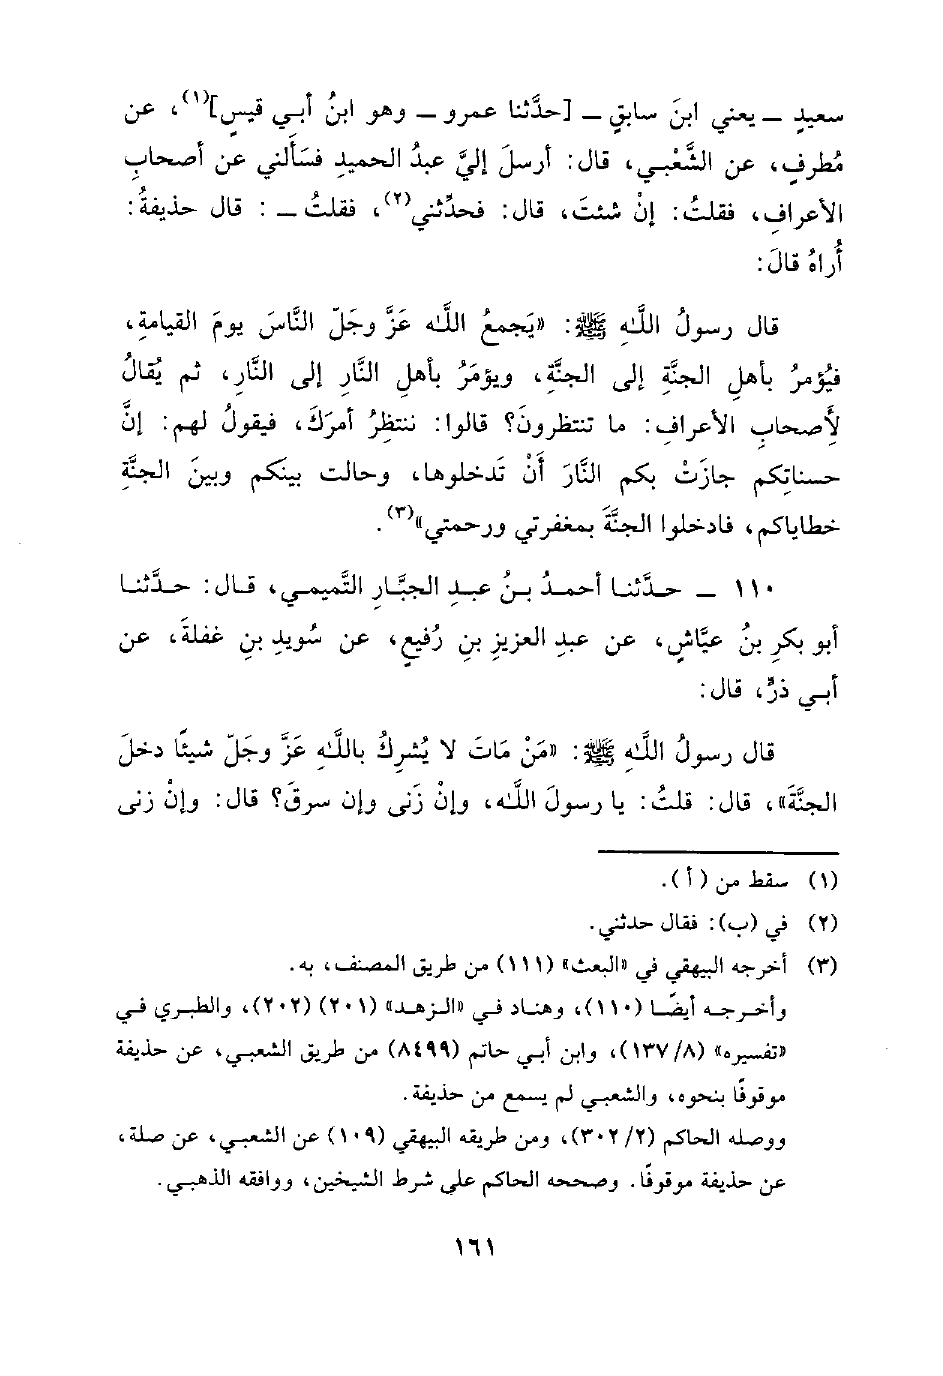 سعيدٍ ــ يعني ابنَ سابقٍ ــ [حدَّثنا عمرو ــ وهو ابنُ أبي قيسٍ](١)، عن
مُطرفٍ، عن الشَّعْبي، قال: أرسلَ إليَّ عبدُ الحميدِ فسَألني عن أصحابِ
الأعرافِ، فقلتُ: إنْ شئتَ، قال: فحدِّثني(٢)، فقلتُ ــ : قال حذيفةُ:
أُراهُ قالَ:
قال رسولُ اللَّهِ ﷺ: «يَجمعُ اللَّه عَزَّ وجَلّ النَّاسَ يومَ القيامةِ،
فيُؤمرُ بأهلِ الجنَّةِ إلى الجنَّةِ، ويؤمَرُ بأهلِ النَّارِ إلى النَّارِ، ثم يُقالُ
لأَصحابِ الأعرافِ: ما تنتظرونَ؟ قالوا: ننتظرُ أمرَكَ، فيقولُ لهم: إنَّ
حسناتِكم جازَتْ بكم النَّارَ أَنْ تَدخلوها، وحالت بينَكم وبينَ الجنَّةِ
خطاياكم، فادخلوا الجنَّةَ بمغفرتي ورحمتي»(٣).
١١٠ ــ حدَّثنا أحمدُ بنُ عبدِ الجبَّارِ التَّميمي، قال: حدَّثنا
أبو بكرِ بنُ عيَّاشٍ، عن عبدِ العزيزِ بنِ رُفيعٍ، عن سُويدِ بنِ غفلةَ، عن
أبي ذرٍّ، قال:
قال رسولُ اللَّهِ ﷺ: «مَنْ مَاتَ لا يُشركُ باللَّهِ عَزَّ وجَلّ شيئًا دخلَ
الجنَّةَ»، قال: قلتُ: يا رسولَ اللَّه، وإنْ زَنى وإن سرقَ؟ قال: وإنْ زنى
(١) سقط من (أ).
(٢) في (ب): فقال حدثني.
(٣) أخرجه البيهقي في «البعث» (١١١) من طريق المصنف، به.
وأخرجه أيضًا (١١٠)، وهناد في «الزهد» (٢٠١) (٢٠٢)، والطبري في
«تفسيره» (١٣٧/٨)، وابن أبي حاتم (٨٤٩٩) من طريق الشعبي، عن حذيفة
موقوفًا بنحوه، والشعبي لم يسمع من حذيفة.
ووصله الحاكم (٣٠٢/٢)، ومن طريقه البيهقي (١٠٩) عن الشعبي، عن صلة،
عن حذيفة موقوفًا. وصححه الحاكم على شرط الشيخين، ووافقه الذهبي.
١٦١